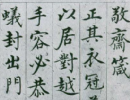 敬齋箴
正其衣冠
以居對越
手容必恭
蟻封出門